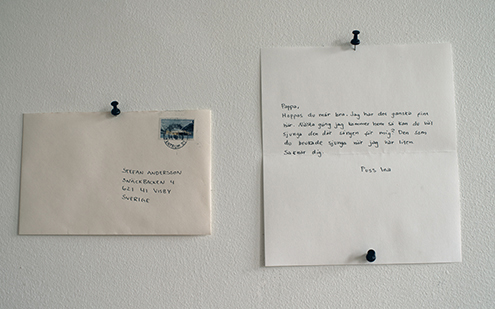 STEFAN ANDERSSON
SNÄCKBACKEN 4
621 41 VISBY
SVERIGE
Pappa,
Hoppas du mår bra. Jag har det ganska fint
här. Nästa gång jag kommer hem så kan du väl
sjunga den där sången för mig? Den som
du brukade sjunga när jag var liten.
Saknar dig.
Puss Ina